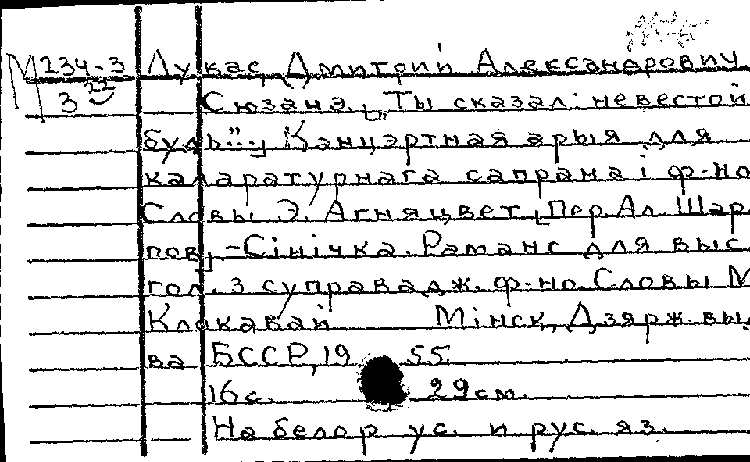 М 234-3 Лукас, Дмитрий Александрович
3 22 Сюзана. [„Ты сказал: невестой
будь"...] Канцэртная арыя для
каларатурнага сапрана і ф-но
Словы Э. Агняцвет, [Пер. Ал. Шар
пов] - Сінічка. Раманс для выс.
гол. з суправадж. ф-но. Словы М
Клакавай Мінск, Дзярж. выд
ва БССР, 1955
16 с. 29 см.
На белорус. и рус. яз.